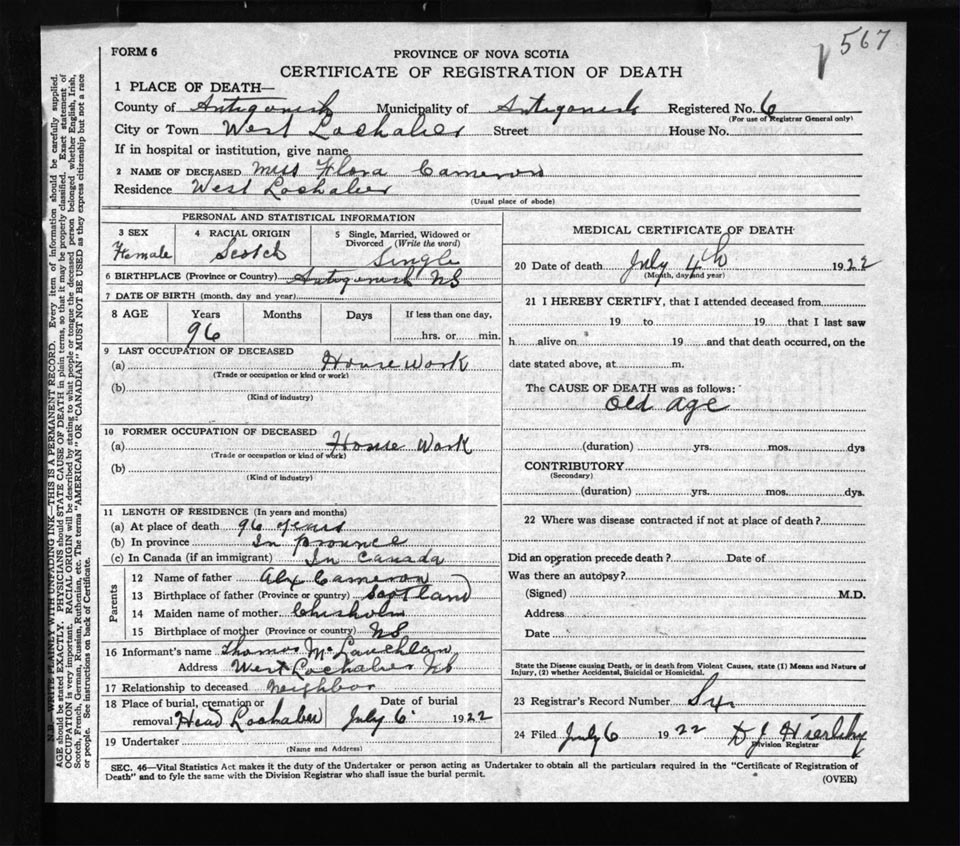 567
FORM 6
PROVINCE OF NOVA SCOTIA
CERTIFICATE OF REGISTRATION OF DEATH
1 PLACE OF DEATH—
County of Antigonish Municipality of Antigonish Registered No. 6
(For use of Registrar General only)
City or Town West Lochaber Street House No.
If in hospital or institution, give name
2 NAME OF DECEASED Miss Flora Cameron
Residence West Lochaber
(Usual place of abode)
PERSONAL AND STATISTICAL INFORMATION
3 SEX
Female
4 RACIAL ORIGIN
Scotch
5 Single, Married, Widowed or
Divorced (Write the word)
Single
6 BIRTHPLACE (Province or Country) Antigonish NS
7 DATE OF BIRTH (month, day and year)
8 AGE Years Months Days If less than one day,
96 hrs. or min.
9 LAST OCCUPATION OF DECEASED
(a) House Work
(Trade or occupation or kind or work)
(b)
(Kind of industry)
10 FORMER OCCUPATION OF DECEASED
(a) House Work
(Trade or occupation or kind of work)
(b)
(Kind of industry)
11 LENGTH OF RESIDENCE (In years and months)
(a) At place of death 96 years
(b) In province In province
(c) In Canada (if an immigrant) In Canada
Parents
12 Name of father Alx Cameron
13 Birthplace of father (Province or country) Scotland
14 Maiden name of mother Chisholm
15 Birthplace of mother (Province or country) NS
16 Informant's name Thomas McLauchlan
Address West Lochaber NS
17 Relationship to deceased Neighbor
18 Place of burial, cremation or Date of burial
removal Head Lochaber July 6 1922
19 Undertaker
(Name and Address)
MEDICAL CERTIFICATE OF DEATH
20 Date of death July 4th 1922
(Month, day and year)
21 I HEREBY CERTIFY, that I attended deceased from
19 to 19 that I last saw
h alive on 19 and that death occurred, on the
date stated above, at m.
The CAUSE OF DEATH was as follows:
Old age
(duration) yrs. mos. dys
CONTRIBUTORY
(Secondary)
(duration) yrs. mos. dys.
22 Where was disease contracted if not at place of death?
Did an operation precede death? Date of
Was there an autopsy?
(Signed) M.D.
Address
Date
State the Disease causing Death, or in death from Violent Causes, state (1) Means and Nature of
Injury, (2) whether Accidental, Suicidal or Homicidal.
23 Registrar's Record Number Six
24 Filed July 6 1922 D J
Division Registrar
SEC. 46—Vital Statistics Act makes it the duty of the Undertaker or person acting as Undertaker to obtain all the particulars required in the "Certificate of Registration of
Death" and to fyle the same with the Division Registrar who shall issue the burial permit.
(OVER)
N.B.—WRITE PLAINLY WITH UNFADING INK—THIS IS A PERMANENT RECORD. Every item of information should be carefully supplied.
AGE should be stated EXACTLY. PHYSICIANS should STATE CAUSE OF DEATH in plain terms, so that it may be properly classified. Exact statement of
OCCUPATION is very important. RACIAL ORIGIN will be described by stating to what people or tongue the deceased person belonged whether English, Irish,
Scotch, French, German, Russian, Ruthenian, etc. The terms "AMERICAN" OR "CANADIAN" MUST NOT BE USED as they express citizenship but not a race
or people. See instructions on back of Certificate.